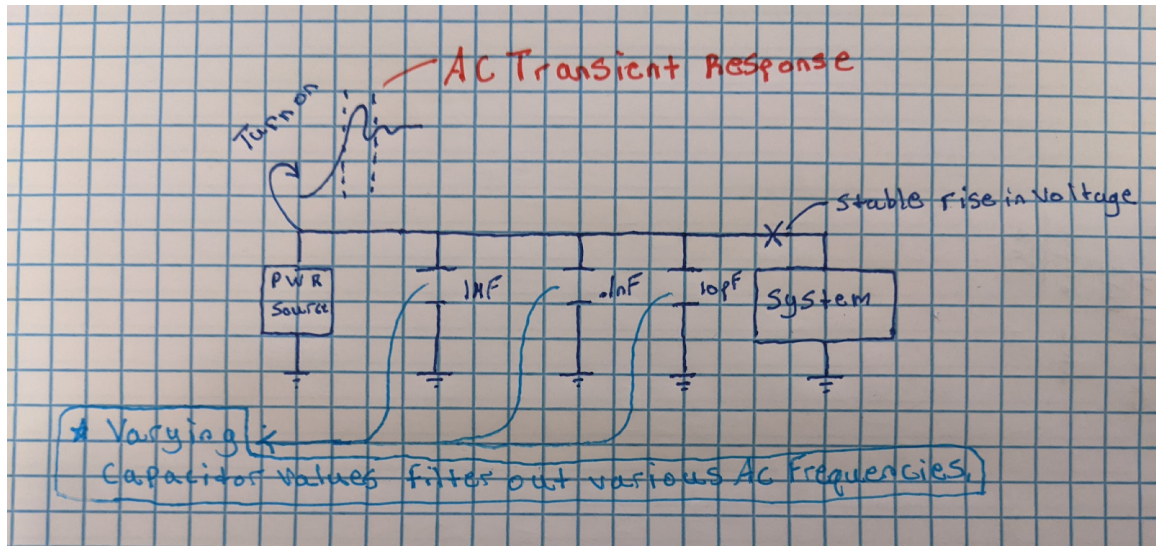 AC Transient Response
Turn on
stable rise in Voltage
PWR
Source
1µF
.1nF
10pF
System
* Varying
Capacitor values filter out various AC Frequencies.